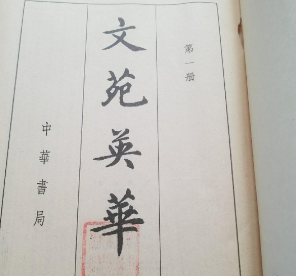 第一册
文苑英華
中華書局